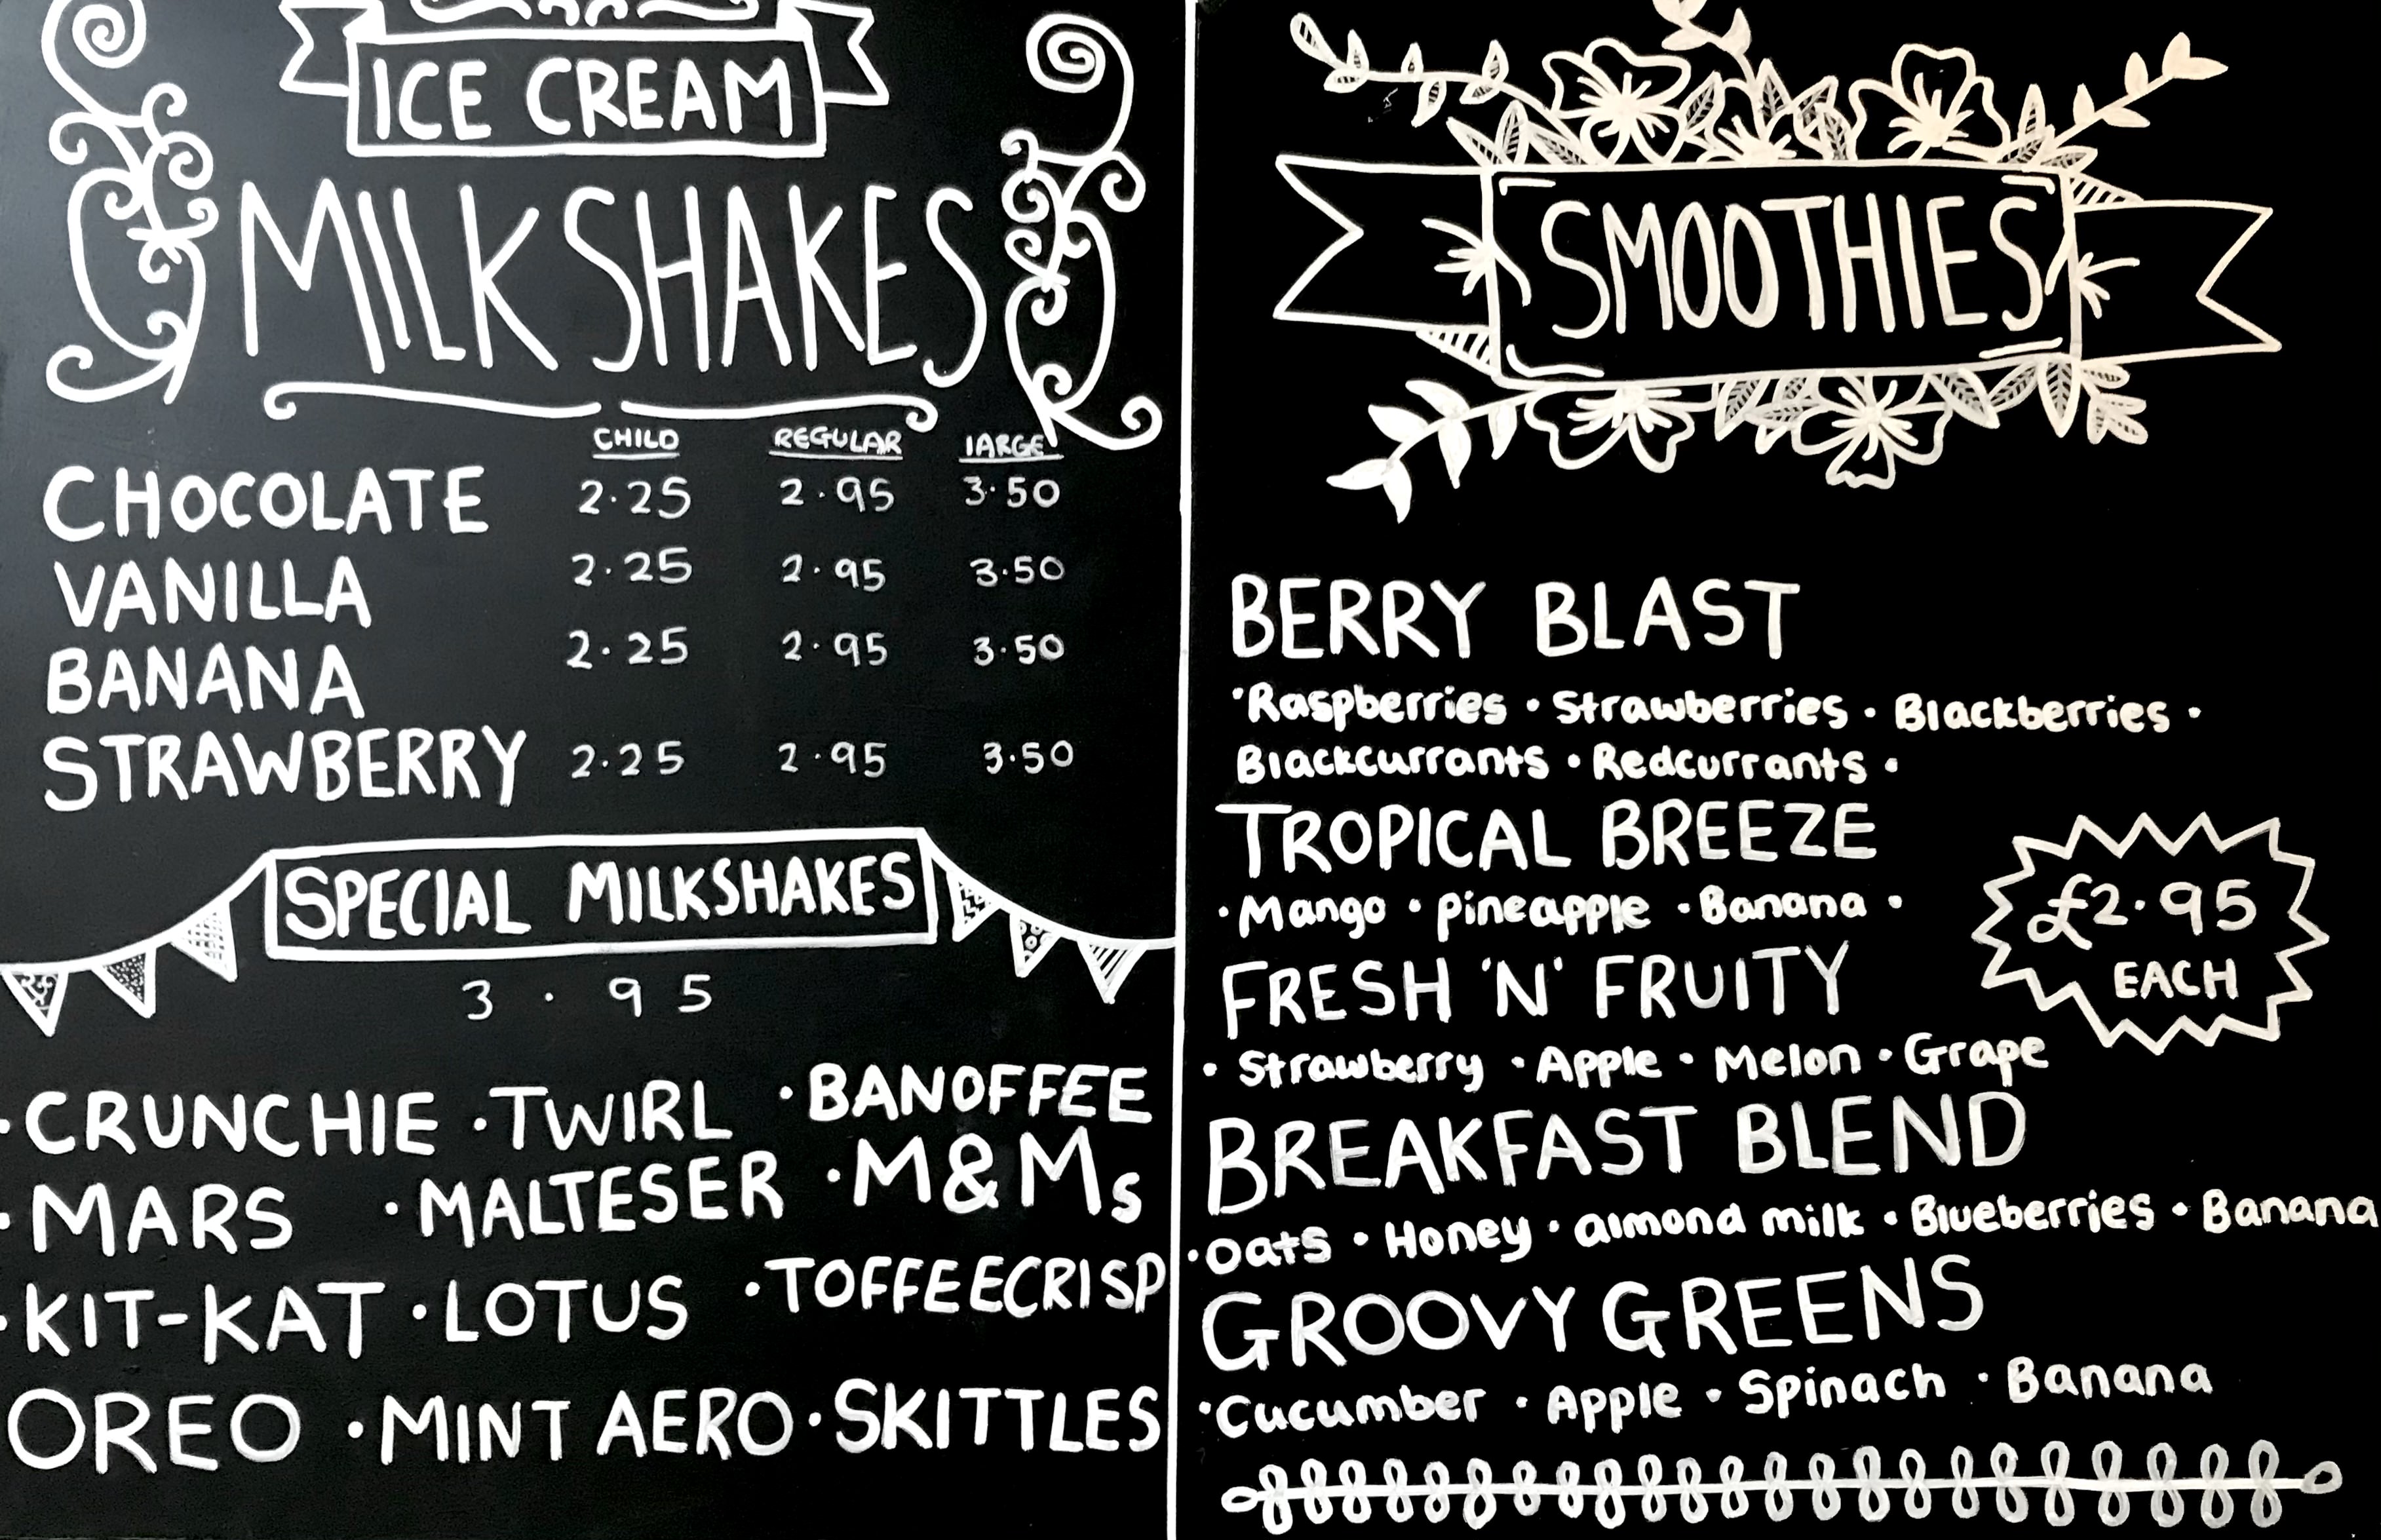 ICE CREAM
MILKSHAKES
CHILD REGULAR LARGE
CHOCOLATE 2.25 2.95 3.50
VANILLA 2.25 2.95 3.50
BANANA 2.25 2.95 3.50
STRAWBERRY 2.25 2.95 3.50
SPECIAL MILKSHAKES
3.95
·CRUNCHIE ·TWIRL ·BANOFFEE
·MARS ·MALTESER ·M&Ms
·KIT-KAT ·LOTUS ·TOFFEECRISP
OREO ·MINT AERO ·SKITTLES
SMOOTHIES
BERRY BLAST
·Raspberries · Strawberries · Blackberries ·
Blackcurrants · Redcurrants ·
TROPICAL BREEZE
·Mango · pineapple ·Banana ·
£2.95
EACH
FRESH 'N' FRUITY
· Strawberry ·Apple · Melon ·Grape
BREAKFAST BLEND
·Oats · Honey · almond milk · Blueberries · Banana
GROOVY GREENS
·Cucumber · Apple · Spinach · Banana